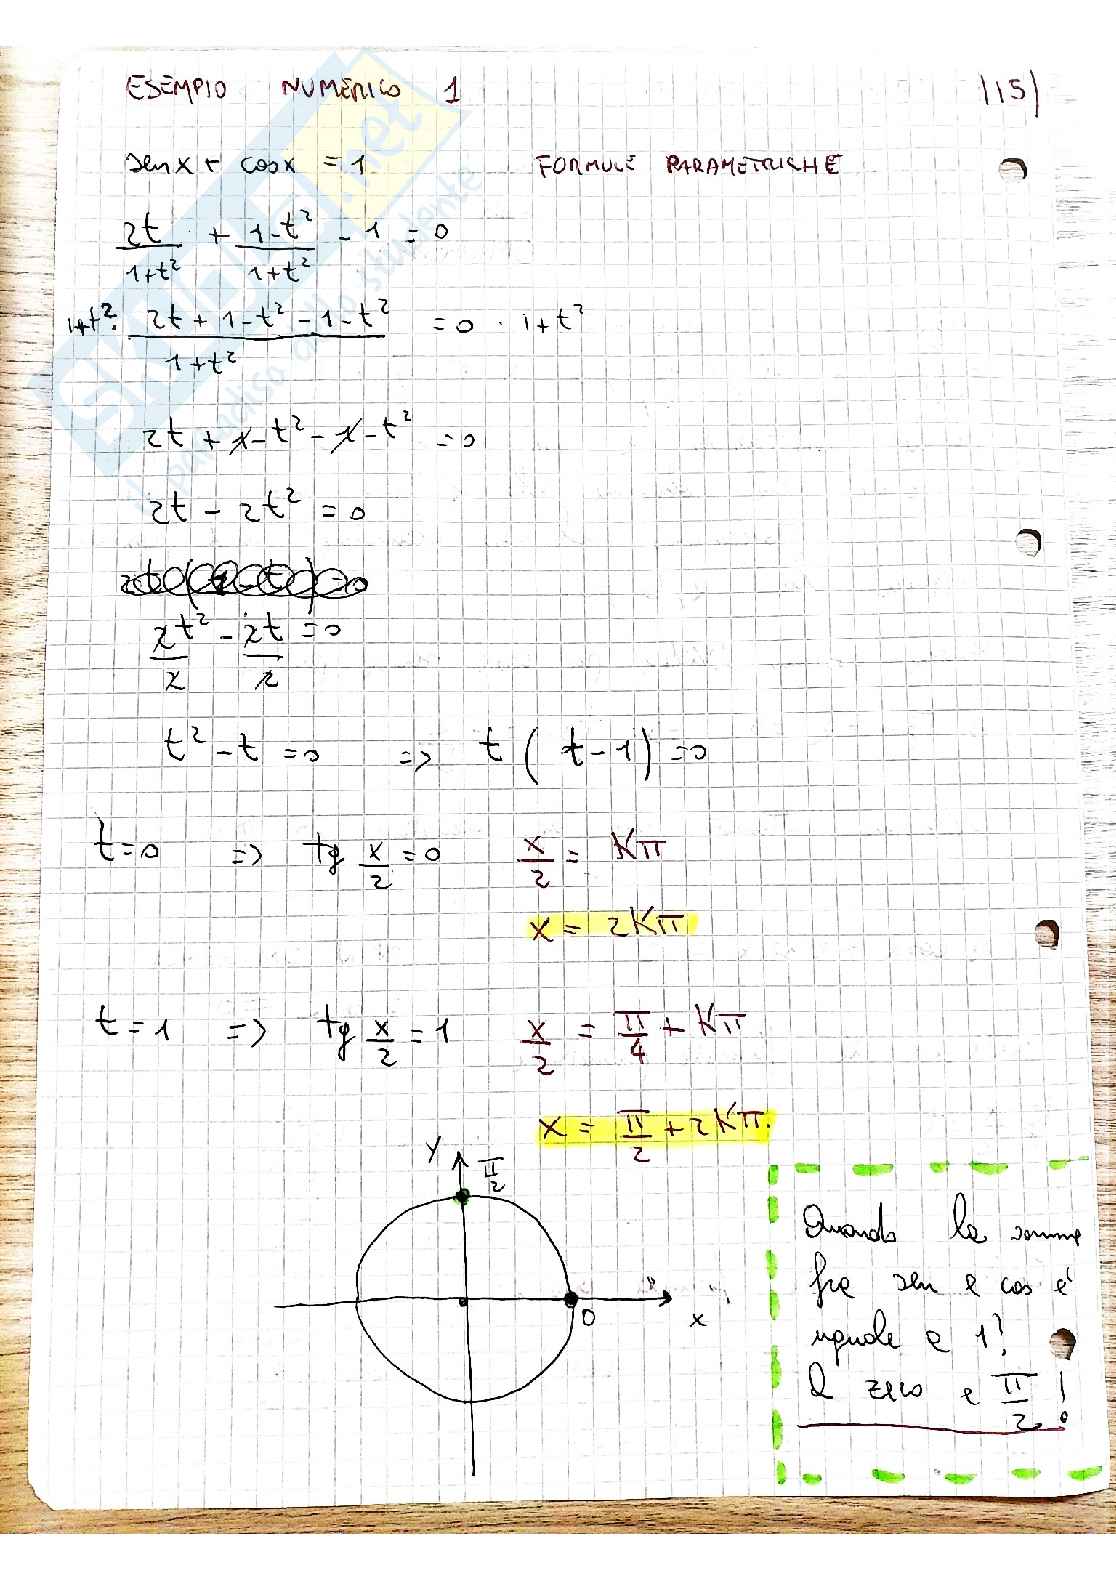 ESEMPIO NUMERICO 1 115
sen x + cos x = 1 FORMULE PARAMETRICHE
2t/(1+t²) + (1-t²)/(1+t²) - 1 = 0
1+t² · (2t + 1 - t² - 1 - t²)/(1+t²) = 0 · 1+t²
2t + 1 - t² - 1 - t² = 0
2t - 2t² = 0
2t²/2 - 2t/2 = 0
t² - t = 0 => t(t-1) = 0
t = 0 => tg x/2 = 0 x/2 = Kπ
x = 2Kπ
t = 1 => tg x/2 = 1 x/2 = π/4 + Kπ
x = π/2 + 2Kπ.
y π/2
0
x
Quando la somma
fra sen e cos è
uguale a 1?
A zero e π/2!
SKUOLA.net
il paradiso dello studente